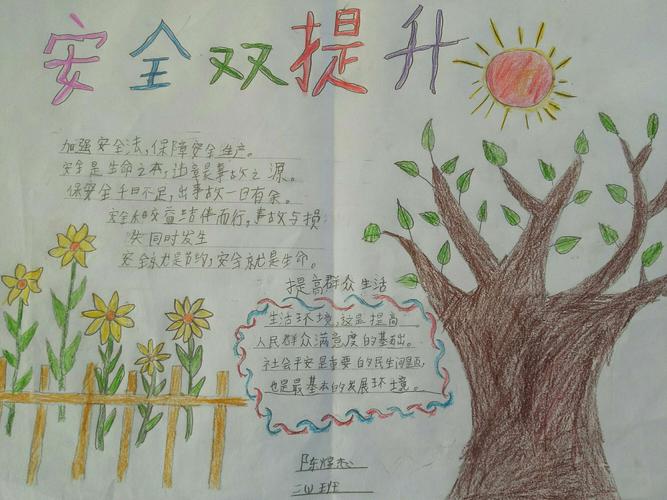 安全双提升
加强安全法，保障安全生产。
安全是生命之本，违章是事故之源。
保安全千日不足，出事故一日有余。
安全和效益结伴而行，事故与损
失同时发生
安全就是节约，安全就是生命。
提高群众生活
生活环境，这是提高
人民群众满意度的基础。
社会平安是重要的民生问题，
也是最基本的发展环境。
陈
班